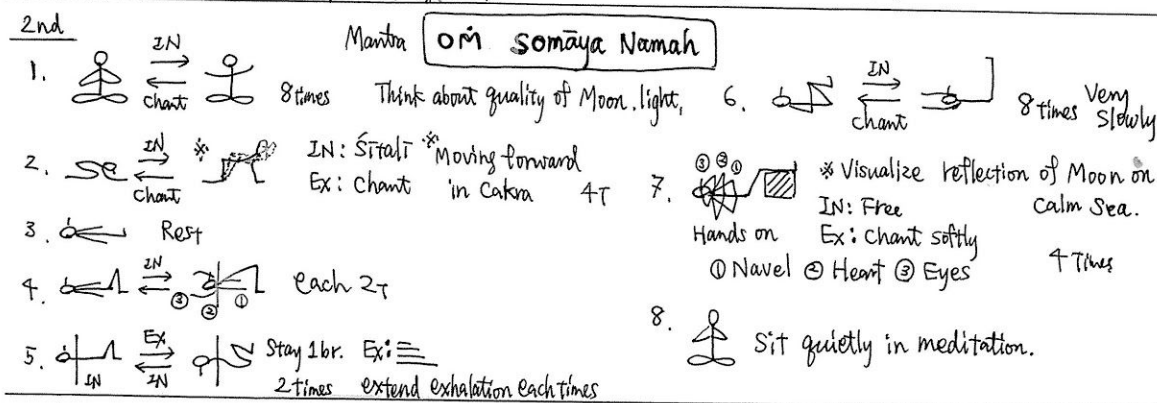 2nd
Mantra OṀ Somāya Namah
1. IN Chant 8times Think about quality of Moon. light,
2. IN Chant ※ IN: Śītalī ※Moving forward
Ex: Chant in Cakra 4T
3. Rest
4. IN ③ ② ① each 2T
5. IN Ex IN Stay 1br. Ex:
2times extend exhalation each times
6. IN Chant 8times Very Slowly
7. ③ ② ① ※ Visualize reflection of Moon on
IN: Free Calm Sea.
Hands on Ex: Chant softly
① Navel ② Heart ③ Eyes 4 Times
8. Sit quietly in meditation.